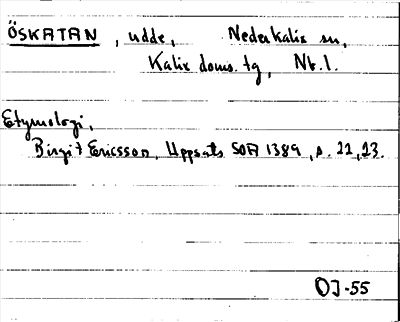 ÖSKATAN, udde, Nederkalix sn,
Kalix doms. tg, Nb. l.
Etymologi,
Birgit Ericsson, Uppsats SOFI 1389, s. 22, 23.
OJ-55